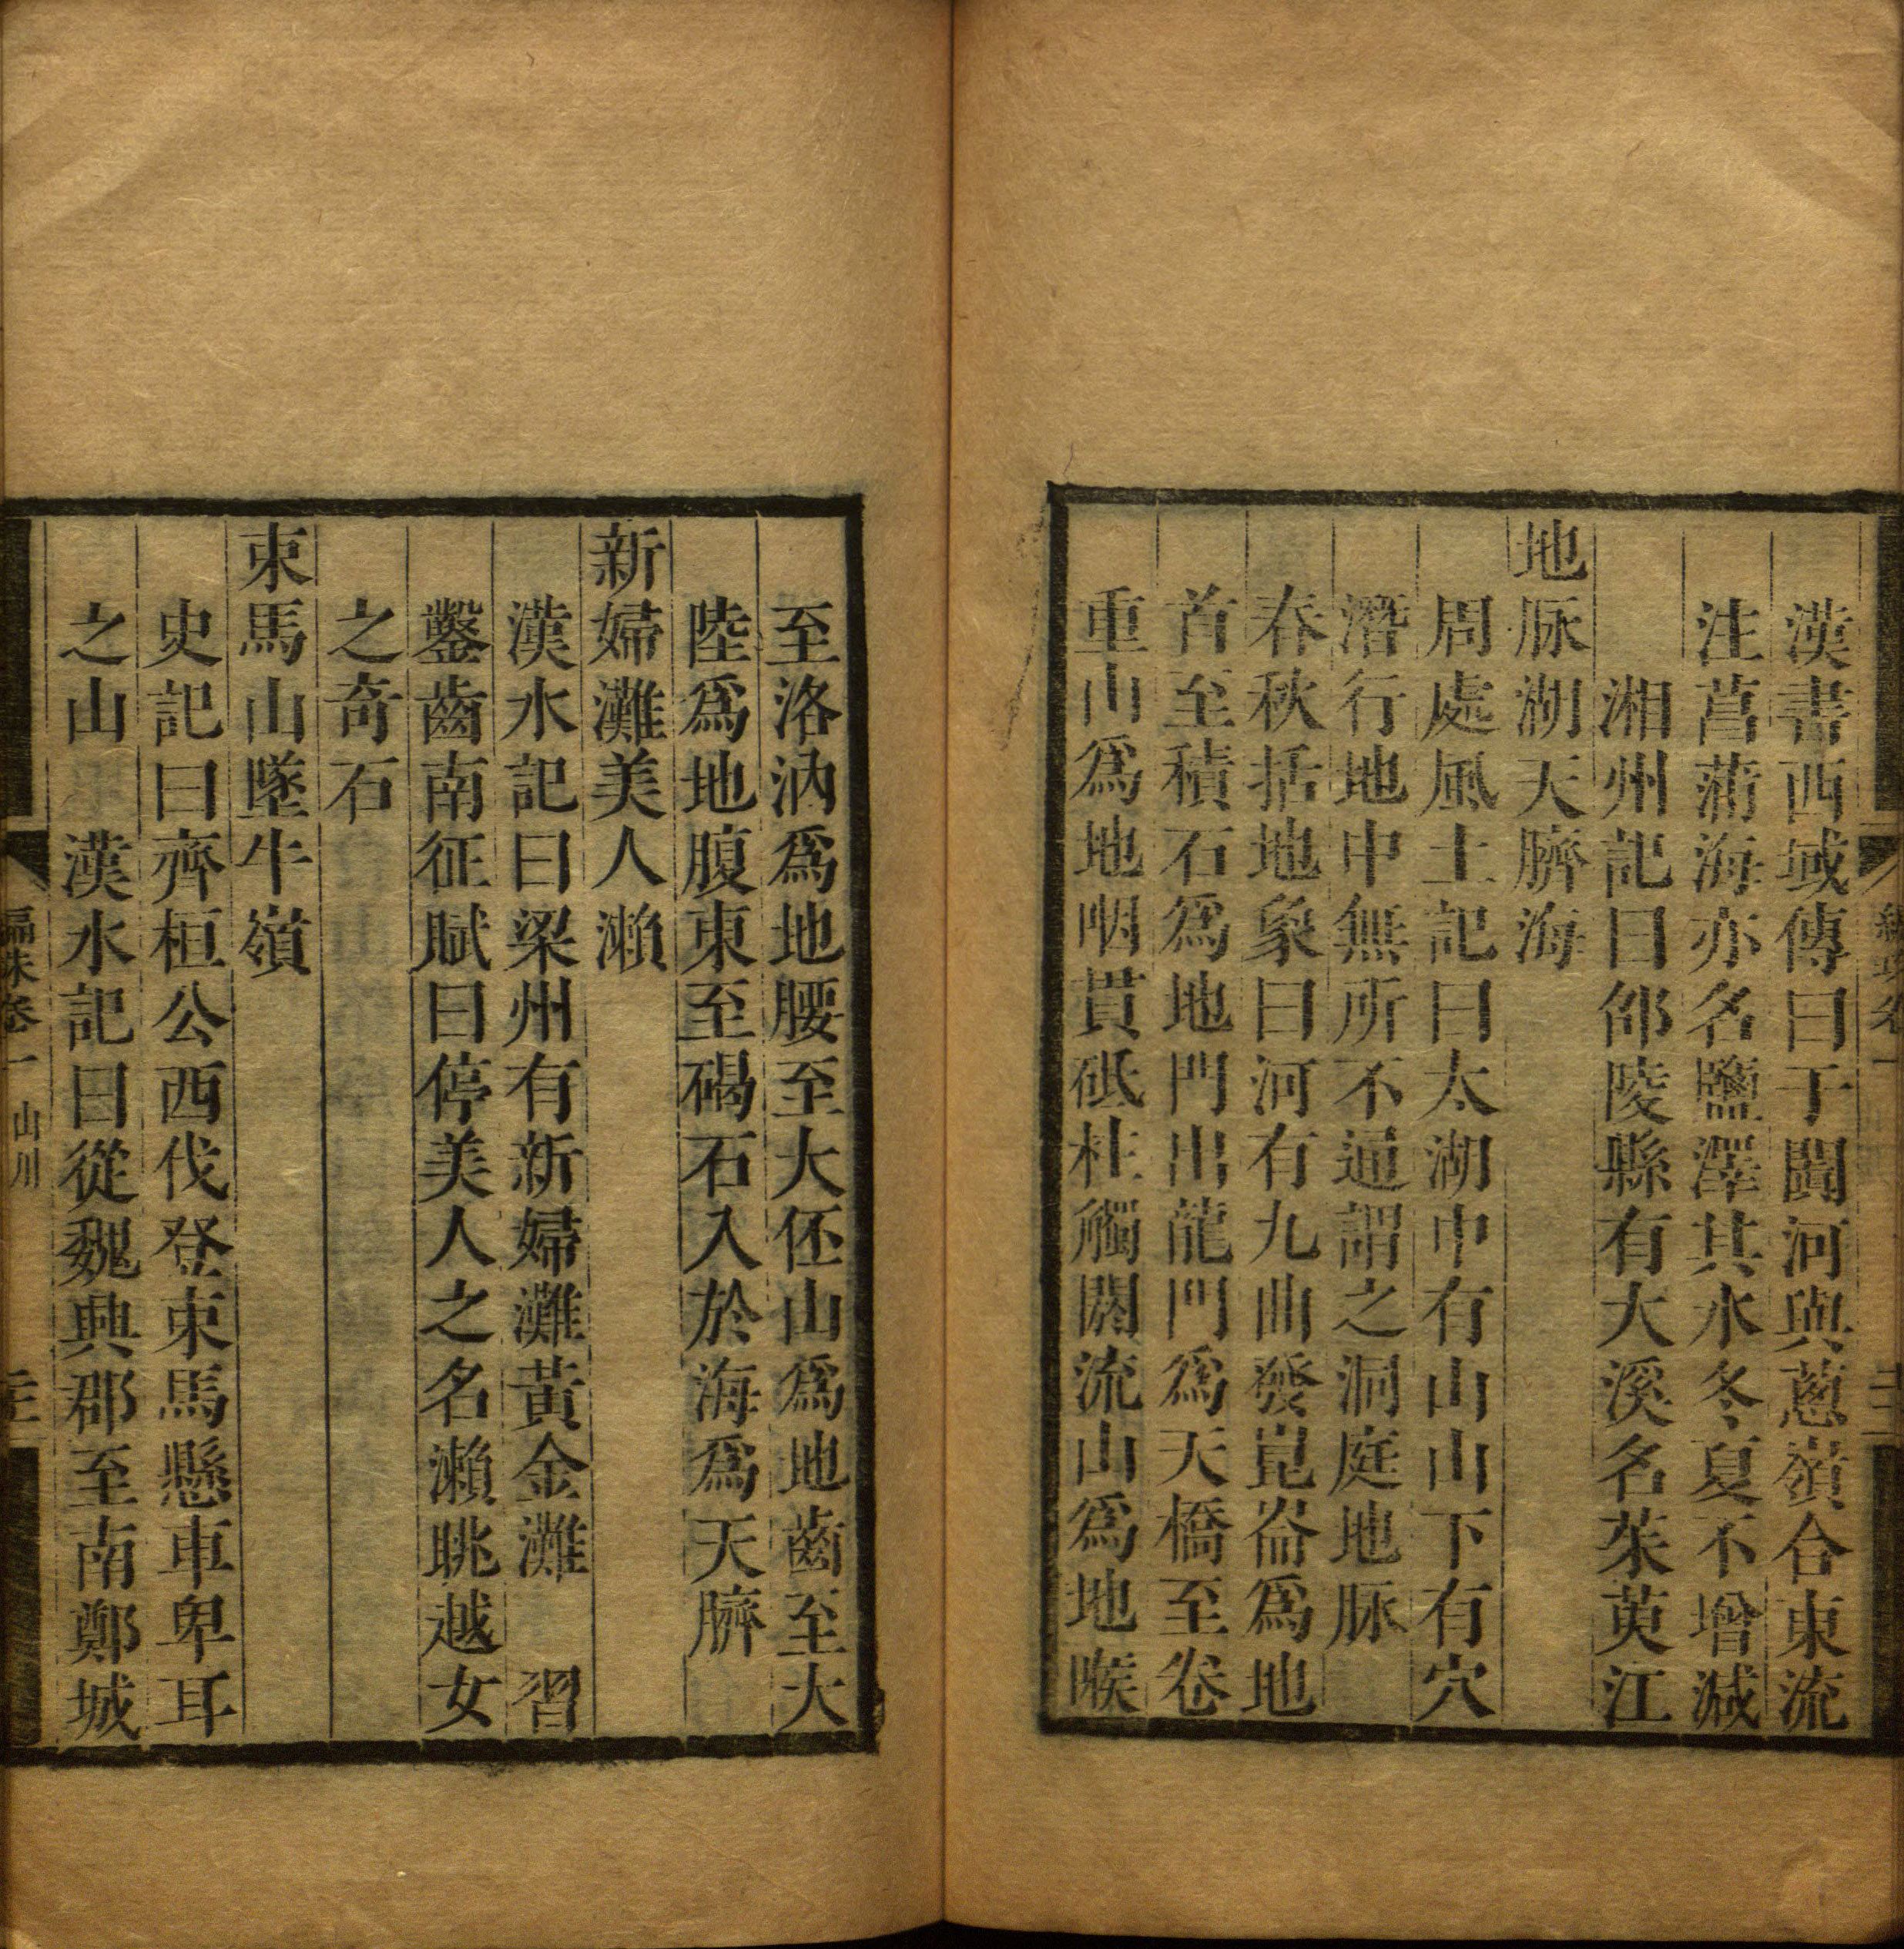 漢書西域傳曰于闐河與蔥嶺合東流
注菖蒲海亦名鹽澤其水冬夏不增減
湘州記曰邵陵縣有大溪名茱萸江
地脉湖天臍海
周處風土記曰太湖中有山山下有穴
潛行地中無所不通謂之洞庭地脉
春秋括地象曰河有九曲發崑崙爲地
首至積石爲地門出龍門爲天橋至卷
重山爲地咽貫砥柱觸閼流山爲地喉
至洛汭爲地腰至大伾山爲地齒至大
陸爲地腹東至碣石入於海爲天臍
新婦灘美人瀨
漢水記曰梁州有新婦灘黃金灘 習
鑿齒南征賦曰停美人之名瀨眺越女
之奇石
束馬山墜牛嶺
史記曰齊桓公西伐登束馬懸車卑耳
之山 漢水記曰從魏興郡至南鄭城
編珠卷一 山川